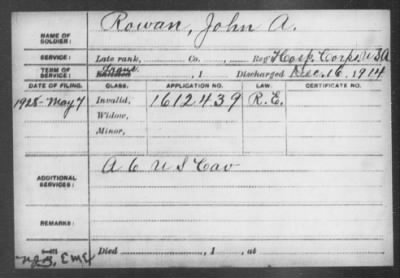 NAME OF SOLDIER: Rowan, John A.
SERVICE: Late rank, Co. , Reg't Hosp. Corps U.S.A
TERM OF SERVICE: Enlisted , 1 Discharged Dec. 16, 1914
DATE OF FILING. CLASS. APPLICATION NO. LAW. CERTIFICATE NO.
1928-May 7 Invalid, 1612439 R.E.
Widow,
Minor,
ADDITIONAL SERVICES: A 6 U S Cav
REMARKS:
Died , 1 , at